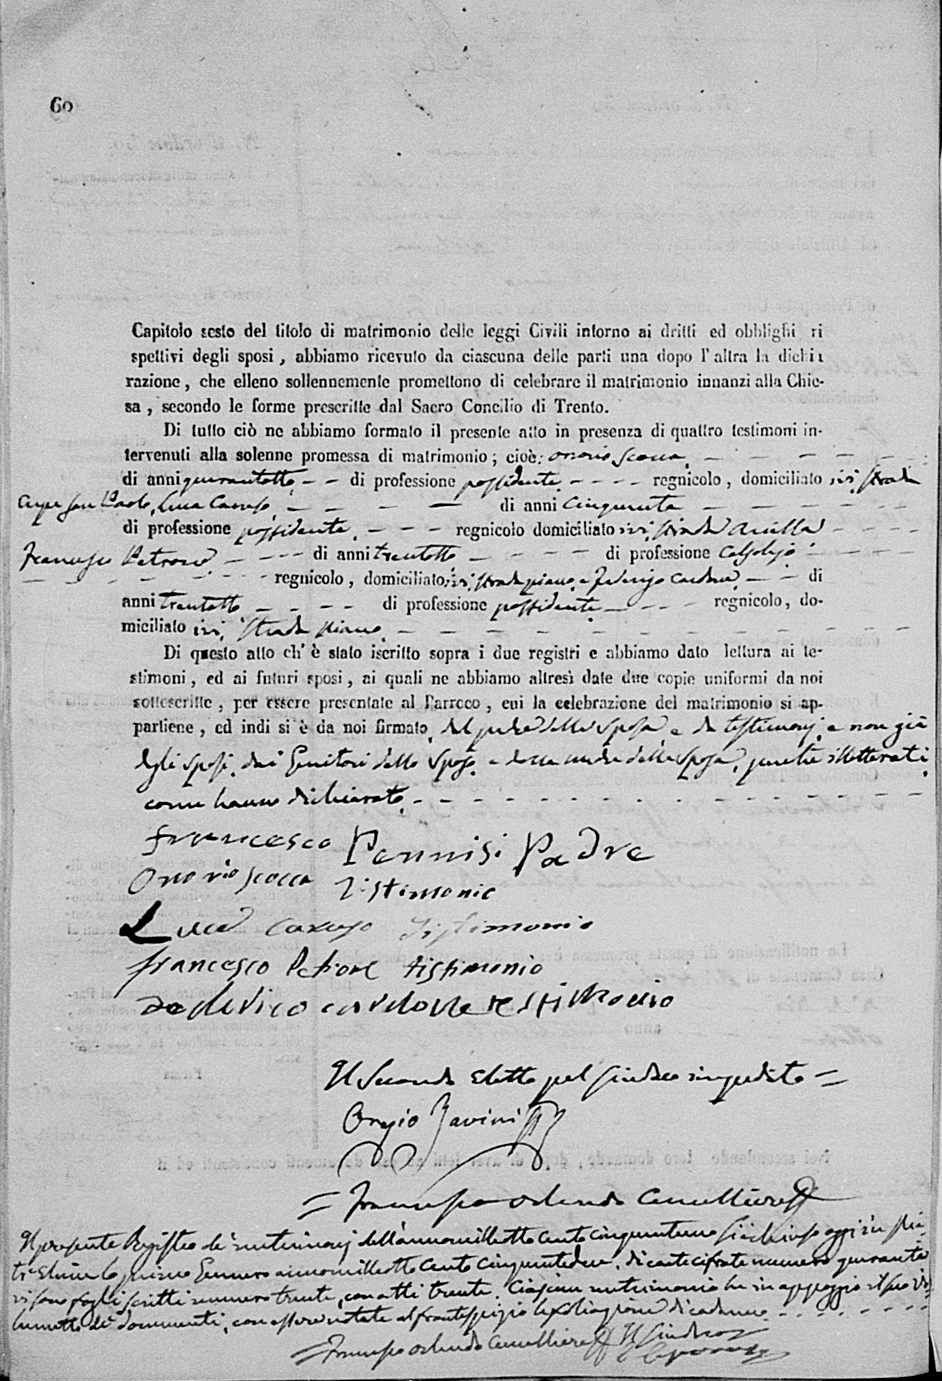 60
Capitolo sesto del titolo di matrimonio delle leggi Civili intorno ai dritti ed obblighi ri
spettivi degli sposi, abbiamo ricevuto da ciascuna delle parti una dopo l'altra la dichia
razione, che elleno sollennemente promettono di celebrare il matrimonio innanzi alla Chie-
sa, secondo le forme prescritte dal Sacro Concilio di Trento.
Di tutto ciò ne abbiamo formato il presente atto in presenza di quattro testimoni in-
tervenuti alla solenne promessa di matrimonio; cioè: Onorio Scacca
di anni quarantotto di professione possidente regnicolo, domiciliato ivi, strada
San Paolo, Luca Caruso di anni cinquanta
di professione possidente regnicolo domiciliato ivi, strada
Francesco Petrone di anni trentotto di professione calzolajo
regnicolo, domiciliato ivi, strada piano, e Federigo Cardone di
anni trentotto di professione possidente regnicolo, do-
miciliato ivi, strada piano
Di questo atto ch'è stato iscritto sopra i due registri e abbiamo dato lettura ai te-
stimoni, ed ai futuri sposi, ai quali ne abbiamo altresì date due copie uniformi da noi
sottoscritte, per essere presentate al Parroco, cui la celebrazione del matrimonio si ap-
partiene, ed indi si è da noi firmato, dal padre della sposa e da testimonj, e non già
dagli sposi, dai Genitori dello sposo, e dalla madre della sposa, perché illetterati,
come hanno dichiarato
Francesco Pennisi Padre
Onorio Scacca Tistimonio
Luca Caruso Tistimonio
francesco Petrone tistimonio
Federico cardone testimonio
Il Secondo Eletto pel Sindaco impedito =
= Francesco Orlando Cancelliere
Il presente Registro de' matrimonj dell'anno mille otto cento cinquantuno si è chiuso oggi in
lo primo Gennaro anno mille otto cento cinquantadue, di carte cifrate numero quaranta
vi sono fogli scritti numero trenta, con atti trenta. Ciascun matrimonio ha in appoggio il suo vo-
lumetto de' documenti, con essere notate al frontespizio le
= Francesco Orlando Cancelliere Il Sindaco